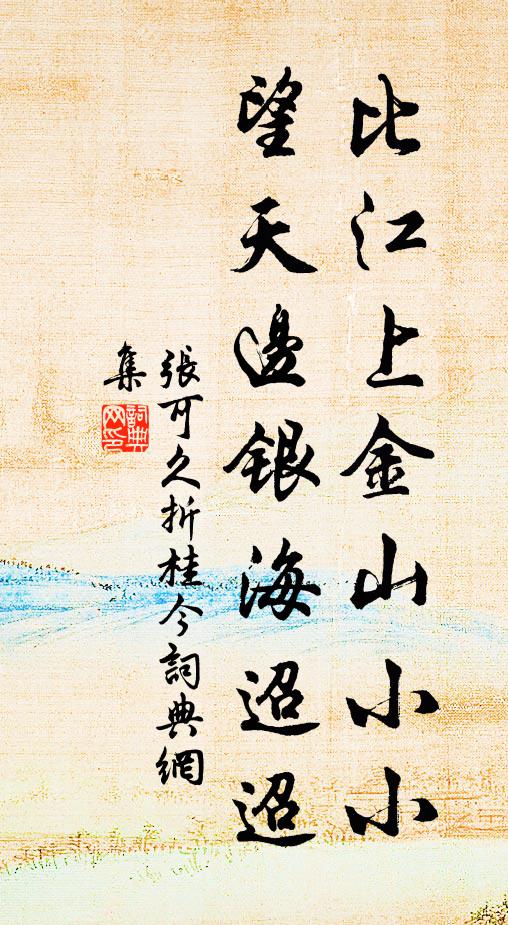 比江上金山小小
望天邊銀海迢迢
張可久折桂令詞典網
集
詞典
网印